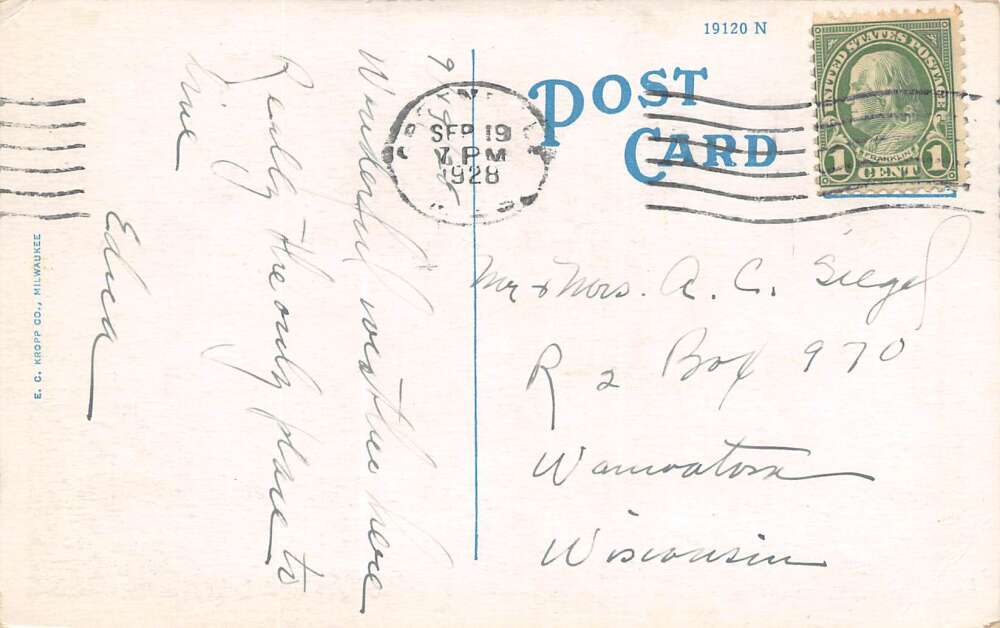 19120 N
POST
CARD
UNITED STATES POSTAGE
FRANKLIN
1 CENT 1
SEP 19
7 PM
1928
Wonderful weather here
Really the only place to
live
Mr & Mrs. A. C. Siegel
R 2 Box 970
Wauwatosa
Wisconsin
E. C. KROPP CO., MILWAUKEE